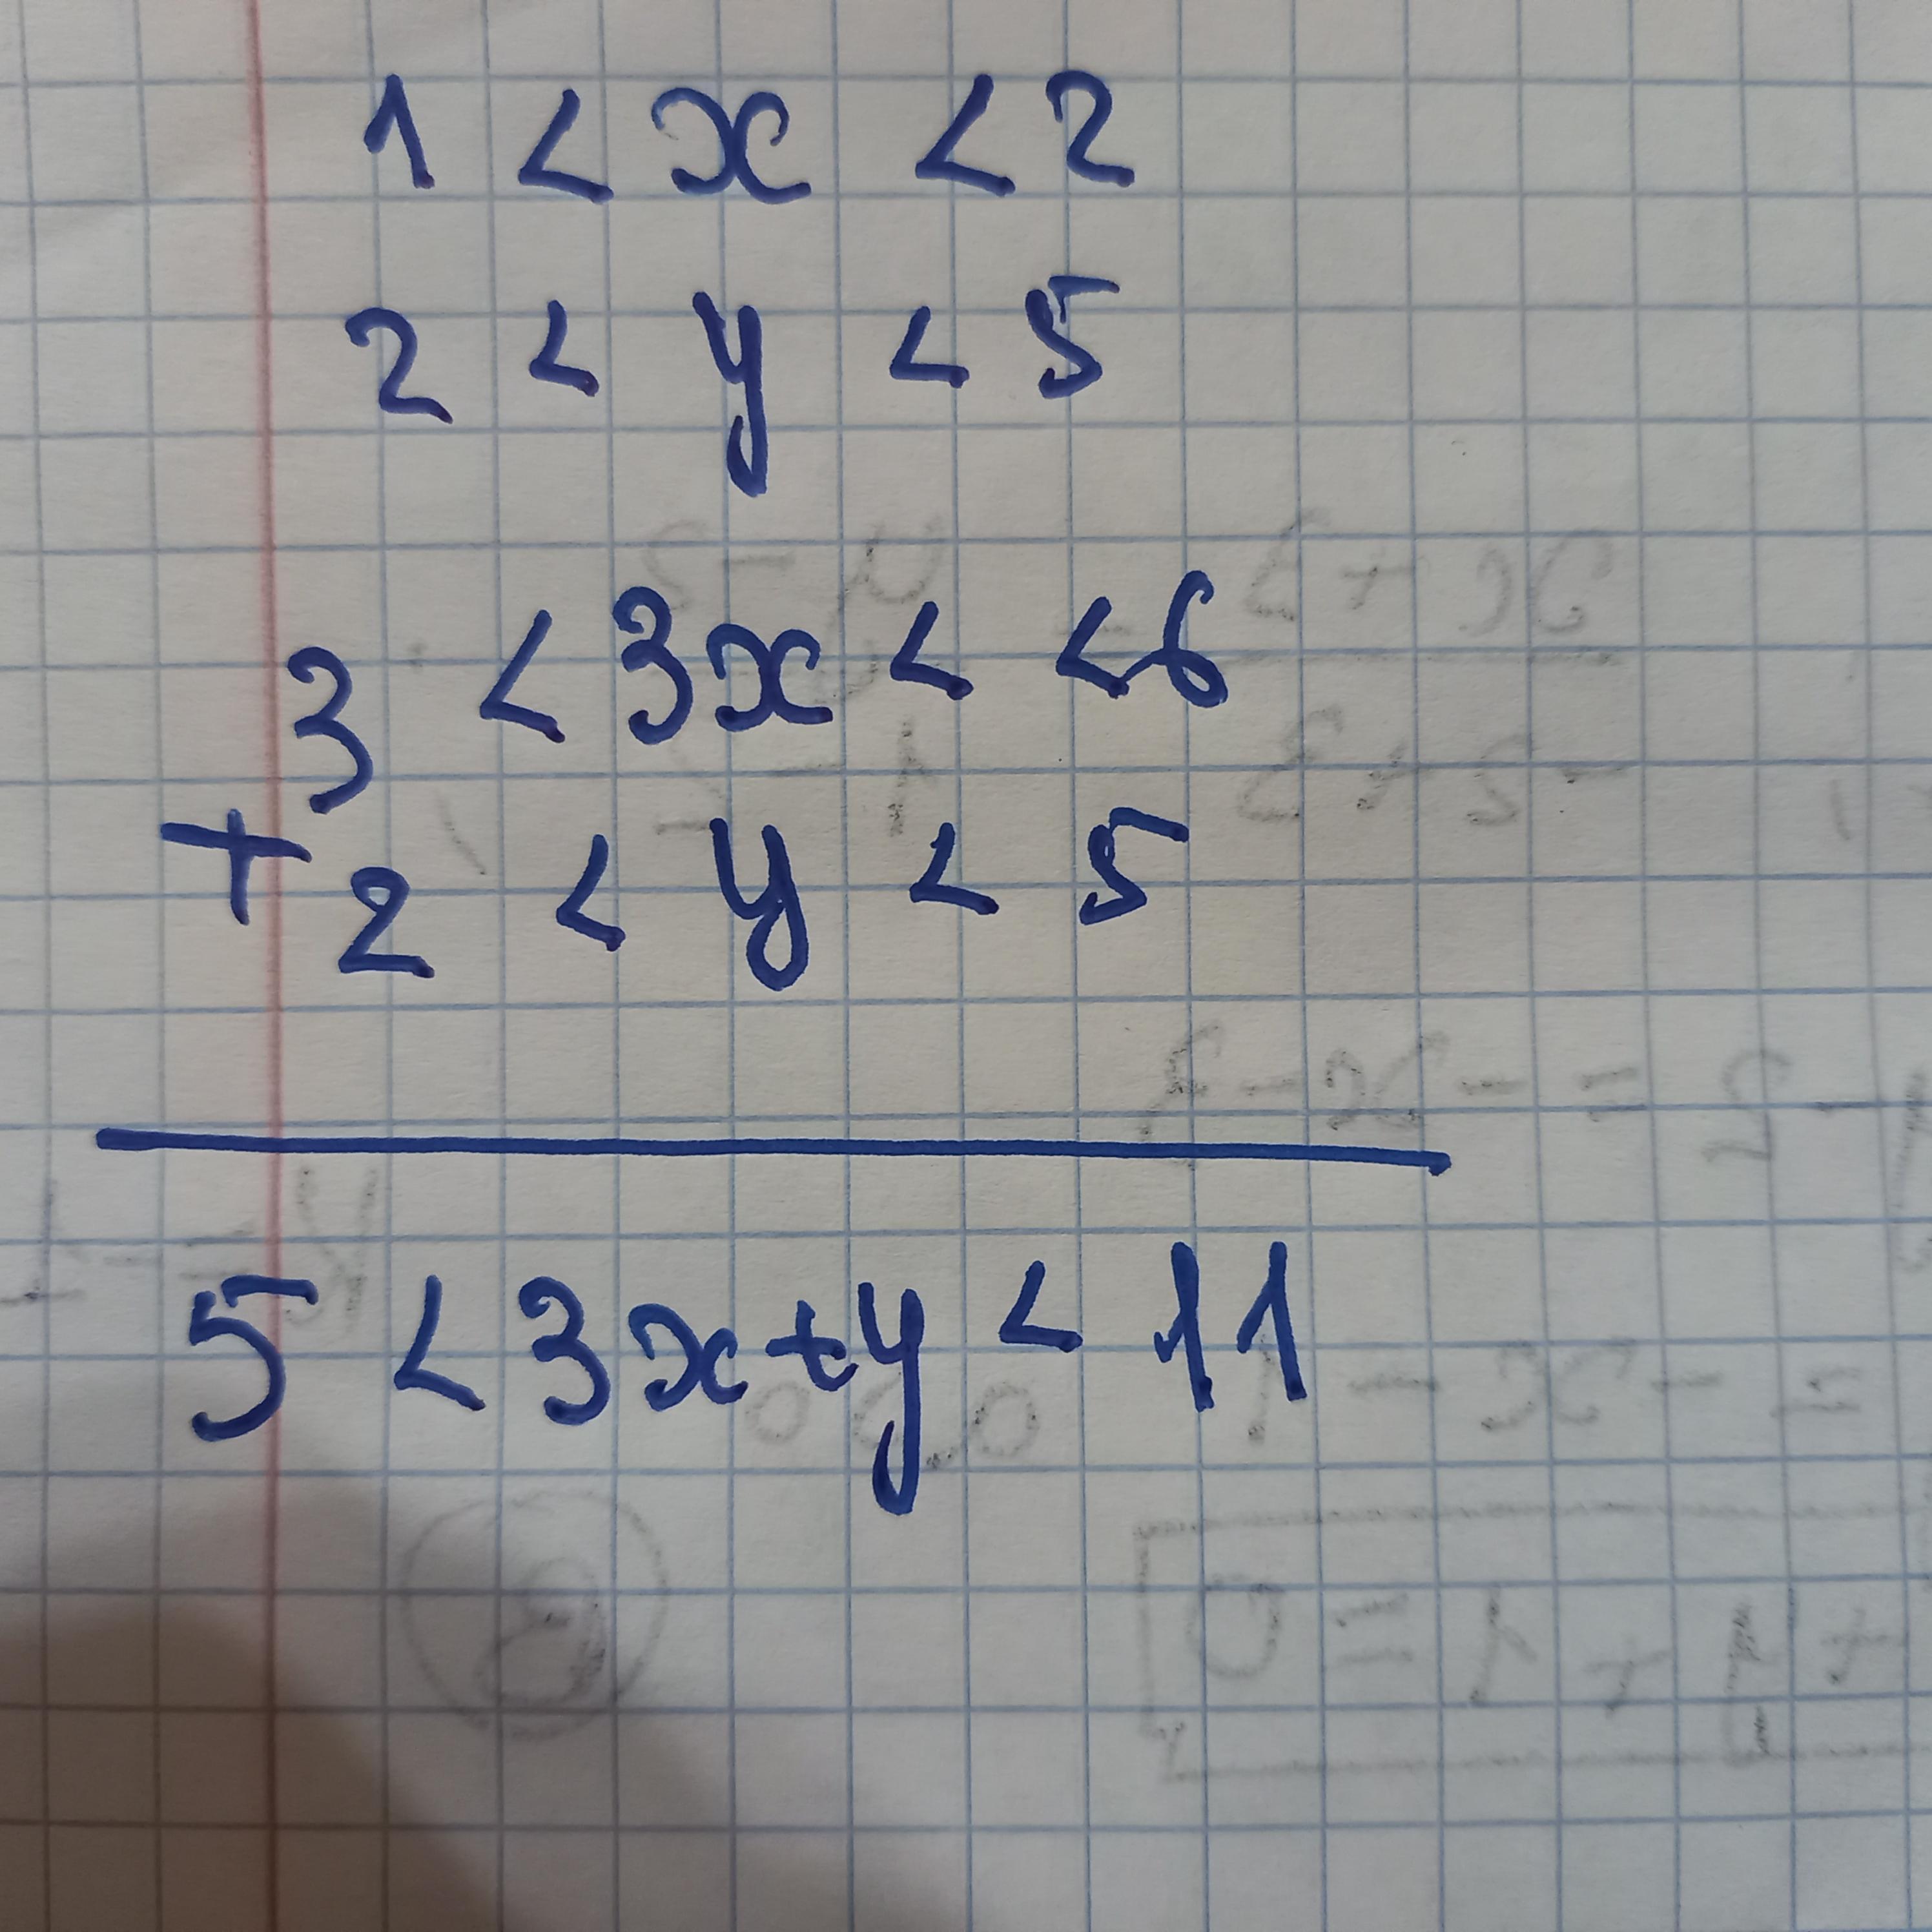 1 < x < 2
2 < y < 5
3 < 3x < < 6
+ 2 < y < 5
5 < 3x + y < 11